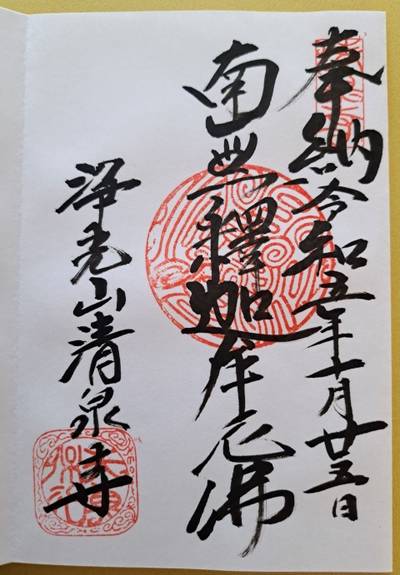 奉納令和五年十月廿五日
南無釋迦牟尼佛
淨光山清泉寺